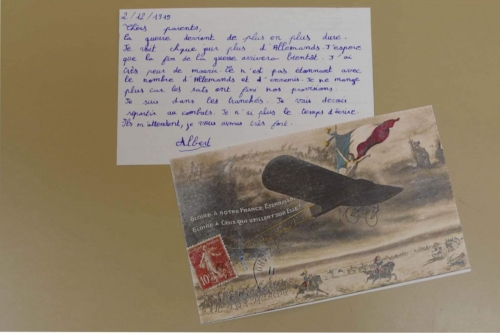 2/12/1919
Chers parents,
La guerre devient de plus en plus dure.
Je voit chque par plus d'Allemands. J'espère
que la fin de la guerre arrivera bientôt. J'ai
très peur de mourir. Ce n'est pas étonnant avec
le nombre d'Allemands et d'ennemis. Je ne mange
plus car les rats ont fini nos provisions.
Je suis dans les tranchés. Je vais devoir
repartir au combats. Je n'ai plus le temps d'écrire.
Ils m'attendent, je vous aimes très fort.
Albert
GLOIRE À NOTRE FRANCE ÉTERNELLE
GLOIRE À CEUX QUI VEILLENT SUR ELLE!
10